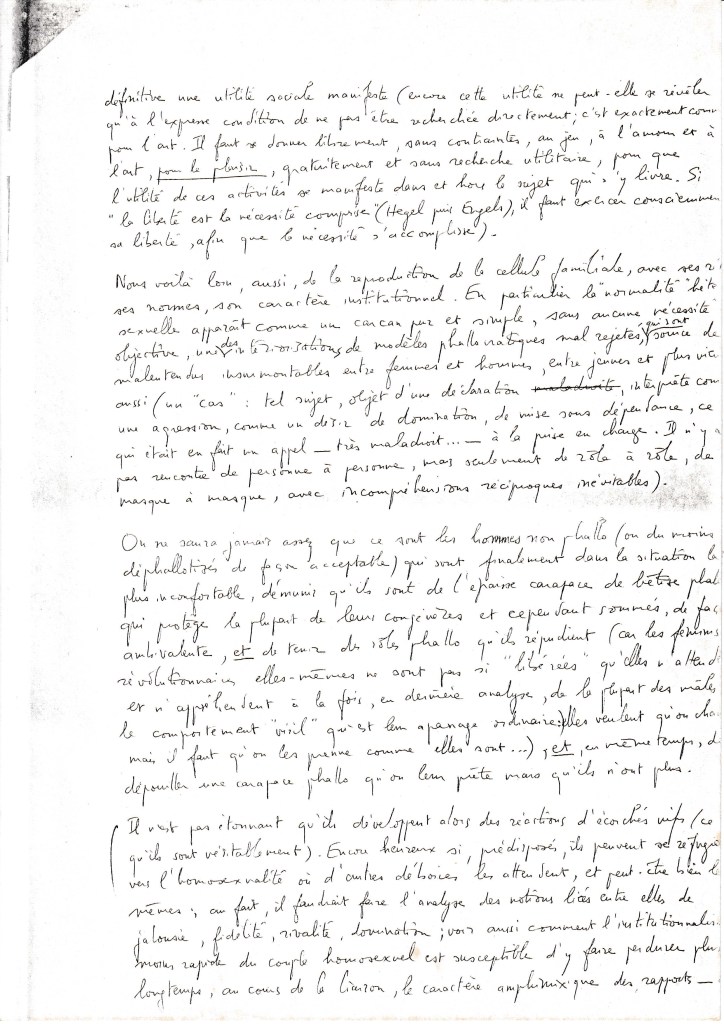 définitive une utilité sociale manifeste (encore cette utilité ne peut-elle se révéler
qu'à l'expresse condition de ne pas être recherchée directement; c'est exactement com
pour l'art. Il faut se donner librement, sans contraintes, au jeu, à l'amour et à
l'art, pour le plaisir, gratuitement et sans recherche utilitaire, pour que
l'utilité de ces activités se manifeste dans et hors le sujet qui s'y livre. Si
"la liberté est la nécessité comprise" (Hegel puis Engels), il faut exercer consciemmen
sa liberté, afin que la nécessité s'accomplisse).
Nous voilà loin, aussi, de la reproduction de la cellule familiale, avec ses ri
ses normes, son caractère institutionnel. En particulier la "normalité" hété
sexuelle apparaît comme un carcan pur et simple, sans aucune nécessité
objective, une des intériorisations de modèles phallocratiques mal rejetés, qui sont source de
malentendus insurmontables entre femmes et hommes, entre jeunes et plus vieu
aussi (un "cas" : tel sujet, objet d'une déclaration, interprète com
une agression, comme un désir de domination, de mise sous dépendance, ce
qui était en fait un appel — très maladroit... — à la prise en charge. Il n'y a
pas rencontre de personne à personne, mais seulement de rôle à rôle, de
masque à masque, avec incompréhensions réciproques inévitables).
On ne saura jamais assez que ce sont les hommes non phallo (ou du moins
déphallotisés de façon acceptable) qui sont finalement dans la situation la
plus inconfortable, démunis qu'ils sont de l'épaisse carapace de bêtise phal
qui protège la plupart de leurs congénères et cependant sommés, de faç
ambivalente, et de tenir des rôles phallo qu'ils répudient (car les femmes
révolutionnaires elles-mêmes ne sont pas si "libérées" qu'elles n'attend
et n'appréhendent à la fois, en dernière analyse, de la plupart des mâles
le comportement "viril" qui est leur apanage ordinaire: elles veulent qu'on cha
mais il faut qu'on les prenne comme elles sont...), et, en même temps, d
dépouiller une carapace phallo qu'on leur prête mais qu'ils n'ont plus.
Il n'est pas étonnant qu'ils développent alors des réactions d'écorchés vifs (ce
qu'ils sont véritablement). Encore heureux si, prédisposés, ils peuvent se réfugie
vers l'homosexualité où d'autres déboires les attendent, et peut-être bien l
mêmes; au fait, il faudrait faire l'analyse des notions liées entre elles de
jalousie, fidélité, rivalité, domination; voir aussi comment l'institutionnalis
moins rapide du couple homosexuel est susceptible d'y faire perdurer plu
longtemps, au cours de la liaison, le caractère amphimixique des rapports —